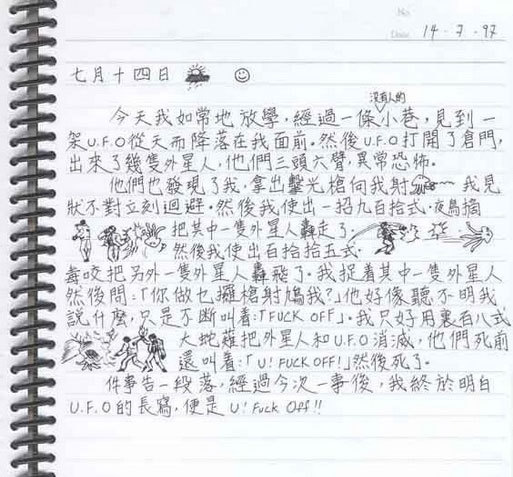 No
Date 14·7·97
七月十四日
沒有人的
今天我如常地放學,經過一條小巷,見到一
架U.F.O從天而降落在我面前.然後U.F.O打開了倉門,
出來了幾隻外星人,他們三頭六臂,異常恐怖.
他們也發現了我,拿出擊光槍向我射 我見
狀不對立刻迴避.然後我使出一招九百拾式.夜鳥摘
把其中一隻外星人轟走了.
然後我使出百拾拾五式.
每咬把另外一隻外星人轟飛了.我捉着其中一隻外星人
然後問:「你做乜攞槍射鳩我?」他好像聽不明我
說什麼,只是不斷叫着:「FUCK OFF」.我只好用裏百八式
大蛇薙把外星人和U.F.O消滅,他們死前
還叫着:「U! FUCK OFF!」然後死了.
件事告一段落,經過今次一事後,我終於明白
U.F.O的長寫,便是U! Fuck Off!!